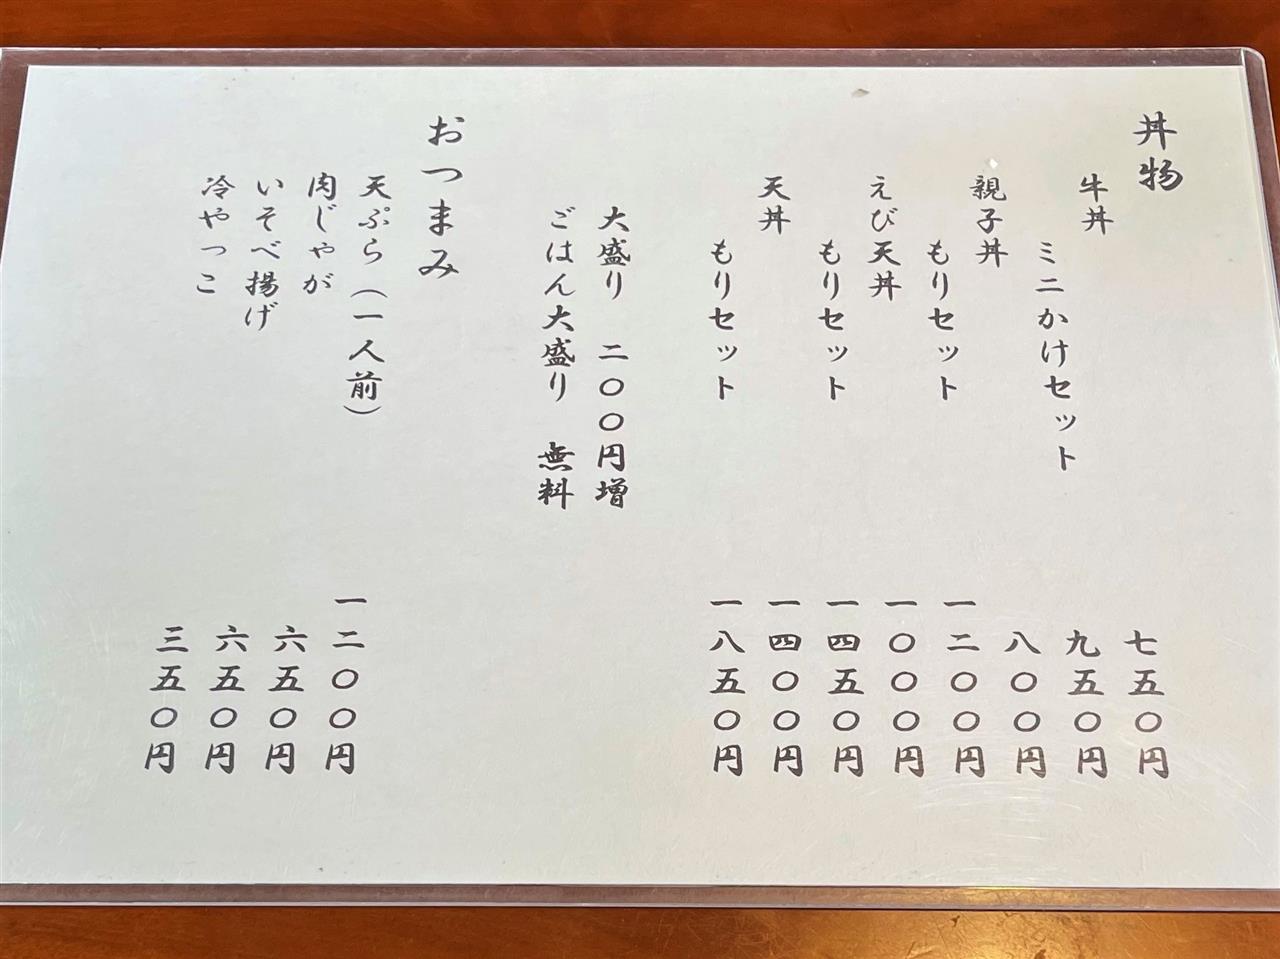 丼物
牛丼 七五〇円
ミニかけセット 九五〇円
親子丼 八〇〇円
もりセット 一二〇〇円
えび天丼 一〇〇〇円
もりセット 一四五〇円
天丼 一四〇〇円
もりセット 一八五〇円
大盛り 二〇〇円増
ごはん大盛り 無料
おつまみ
天ぷら(一人前) 一二〇〇円
肉じゃが 六五〇円
いそべ揚げ 六五〇円
冷やっこ 三五〇円